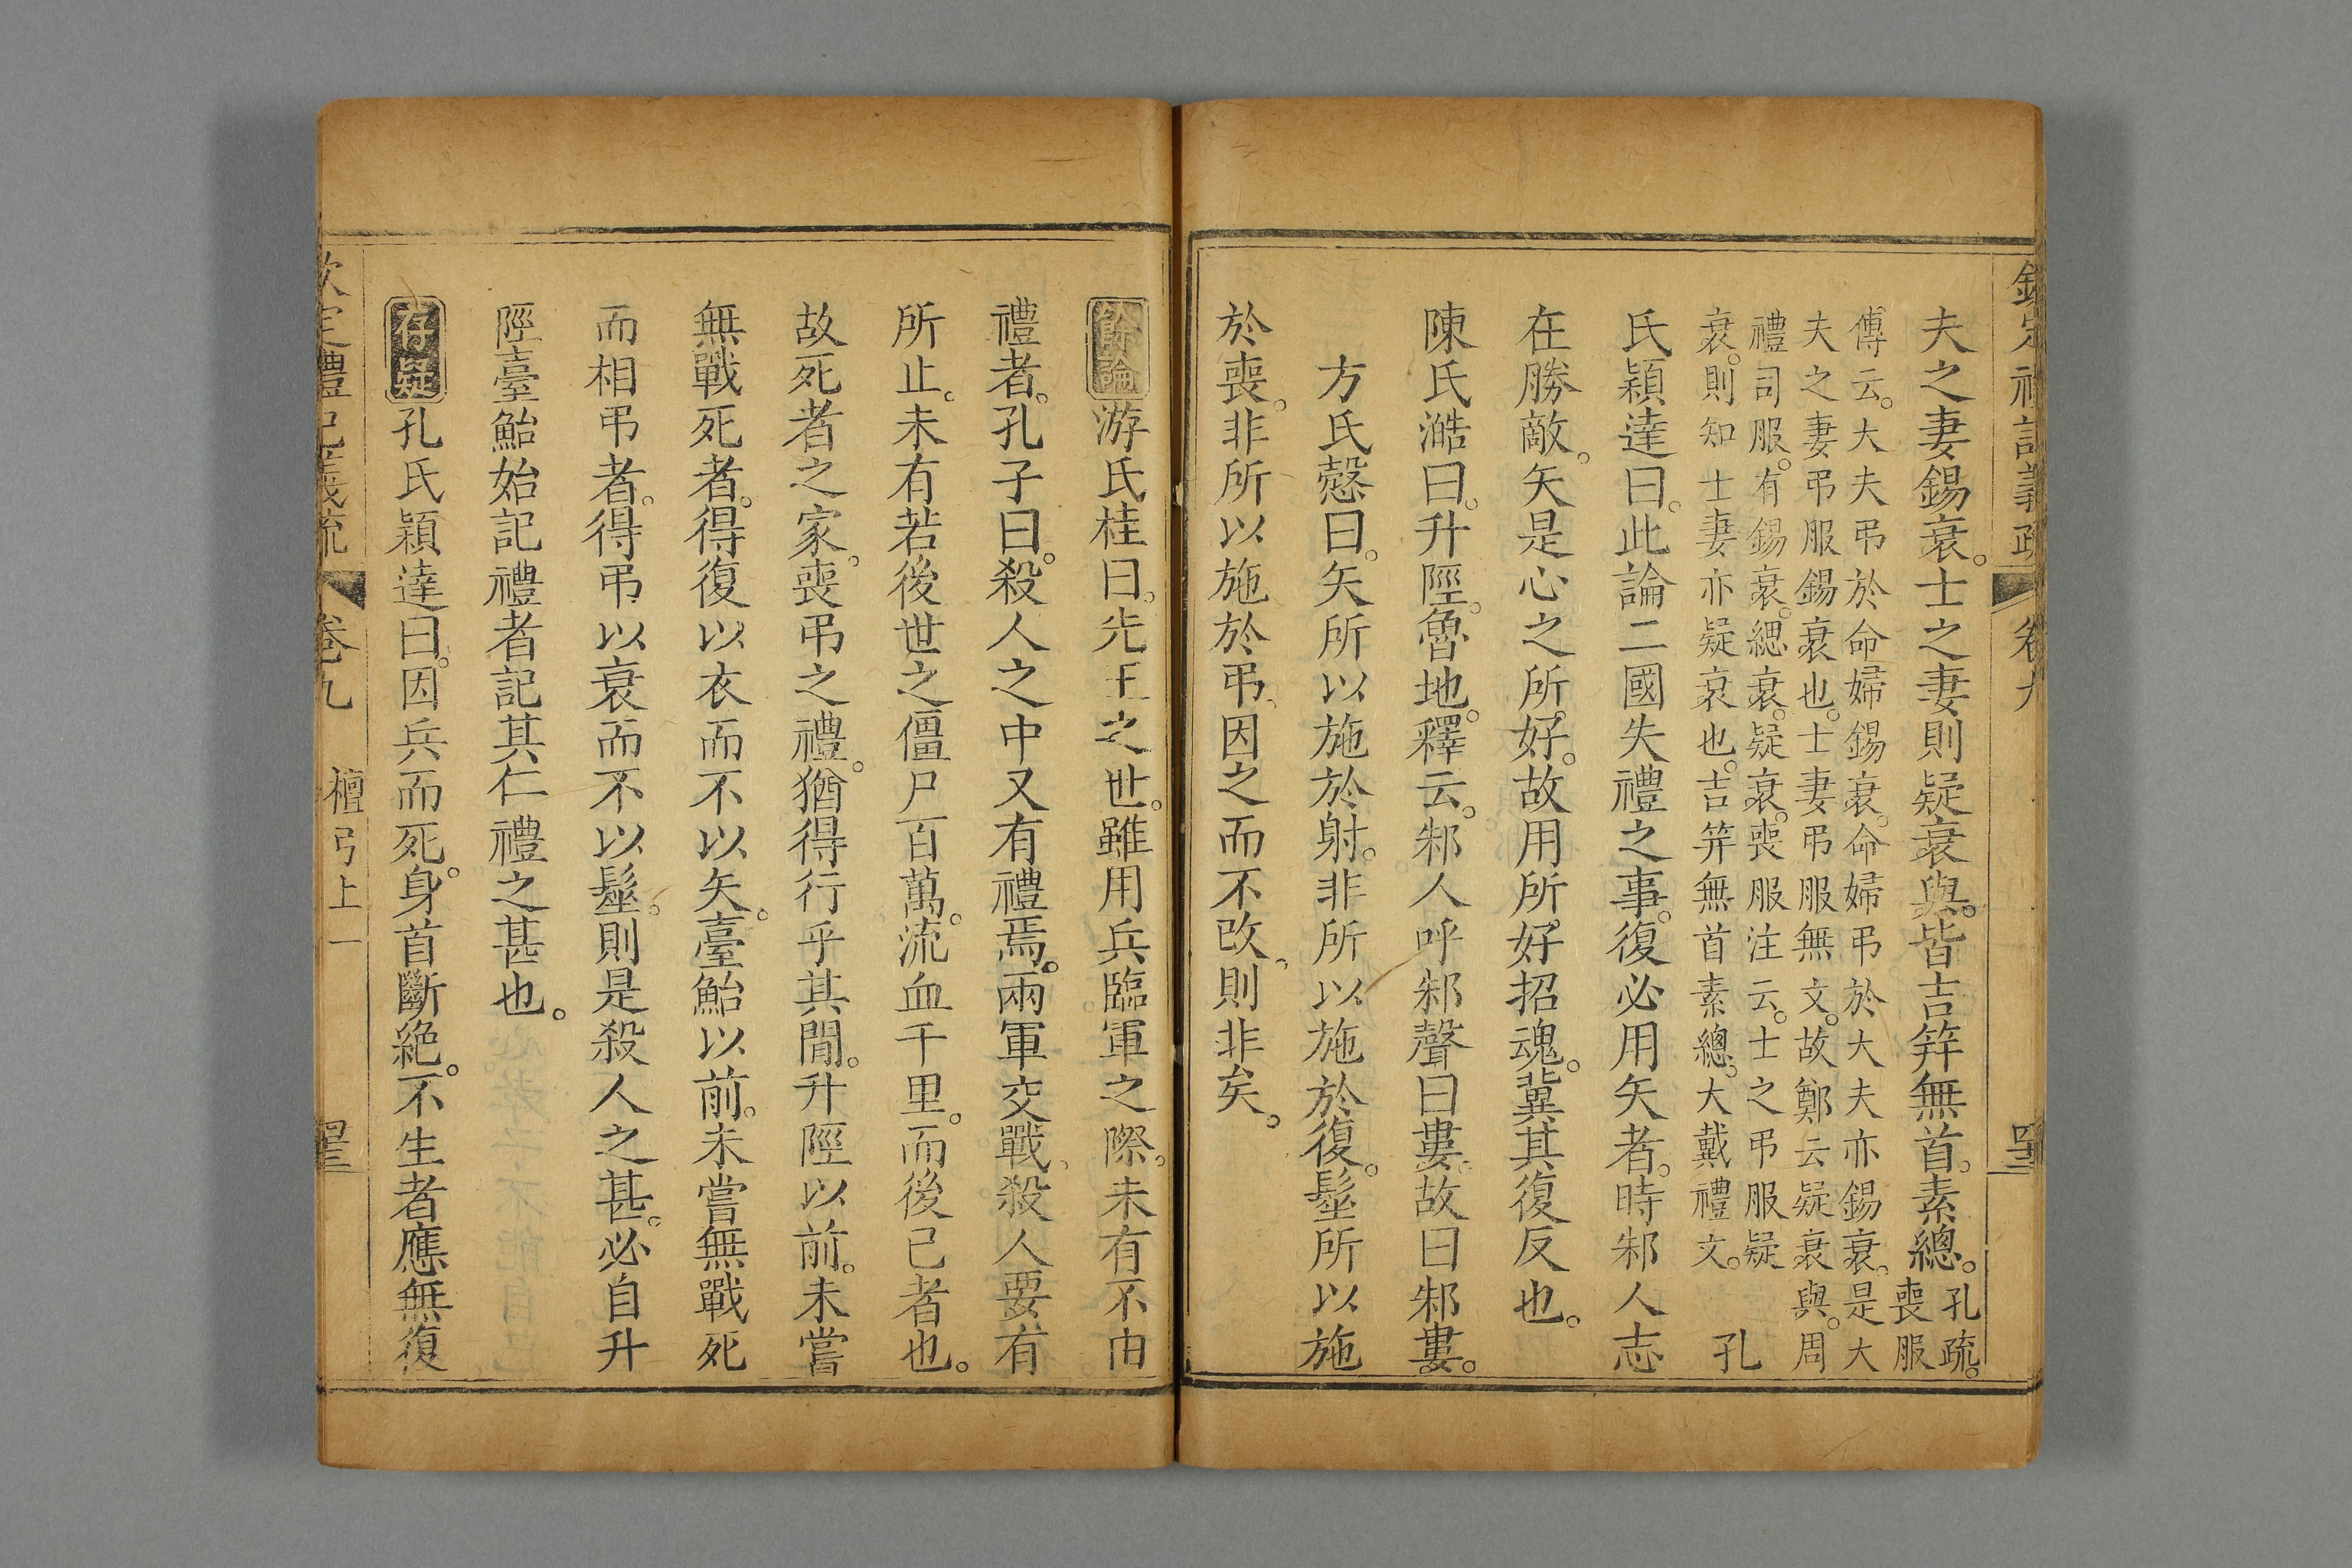 欽定禮記義疏 卷九
夫之妻錫衰。士之妻則疑衰與。皆吉笄無首。素總。孔疏。喪服
傳云。大夫弔於命婦錫衰。命婦弔於大夫亦錫衰。是大
夫之妻弔服錫衰也。士妻弔服無文。故鄭云疑衰與。周
禮司服。有錫衰。緦衰。疑衰。喪服注云。士之弔服疑
衰。則知士妻亦疑衰也。吉笄無首素總。大戴禮文。 孔
氏穎達曰。此論二國失禮之事。復必用矢者。時邾人志
在勝敵。矢是心之所好。故用所好招魂。冀其復反也。
陳氏澔曰。升陘。魯地。釋云。邾人呼邾聲曰婁。故曰邾婁。
方氏慤曰。矢所以施於射。非所以施於復。髽所以施
於喪。非所以施於弔。因之而不改。則非矣。
餘論 游氏桂曰。先王之世。雖用兵臨軍之際。未有不由
禮者。孔子曰。殺人之中又有禮焉。兩軍交戰。殺人要有
所止。未有若後世之僵尸百萬。流血千里。而後已者也。
故死者之家。喪弔之禮。猶得行乎其閒。升陘以前。未嘗
無戰死者。得復以衣而不以矢。臺鮐以前。未嘗無戰死
而相弔者。得弔以衰而不以髽。則是殺人之甚。必自升
陘臺鮐始記禮者記其仁禮之甚也。
存疑 孔氏穎達曰。因兵而死。身首斷絶。不生者應無復
欽定禮記義疏 卷九 檀弓上一